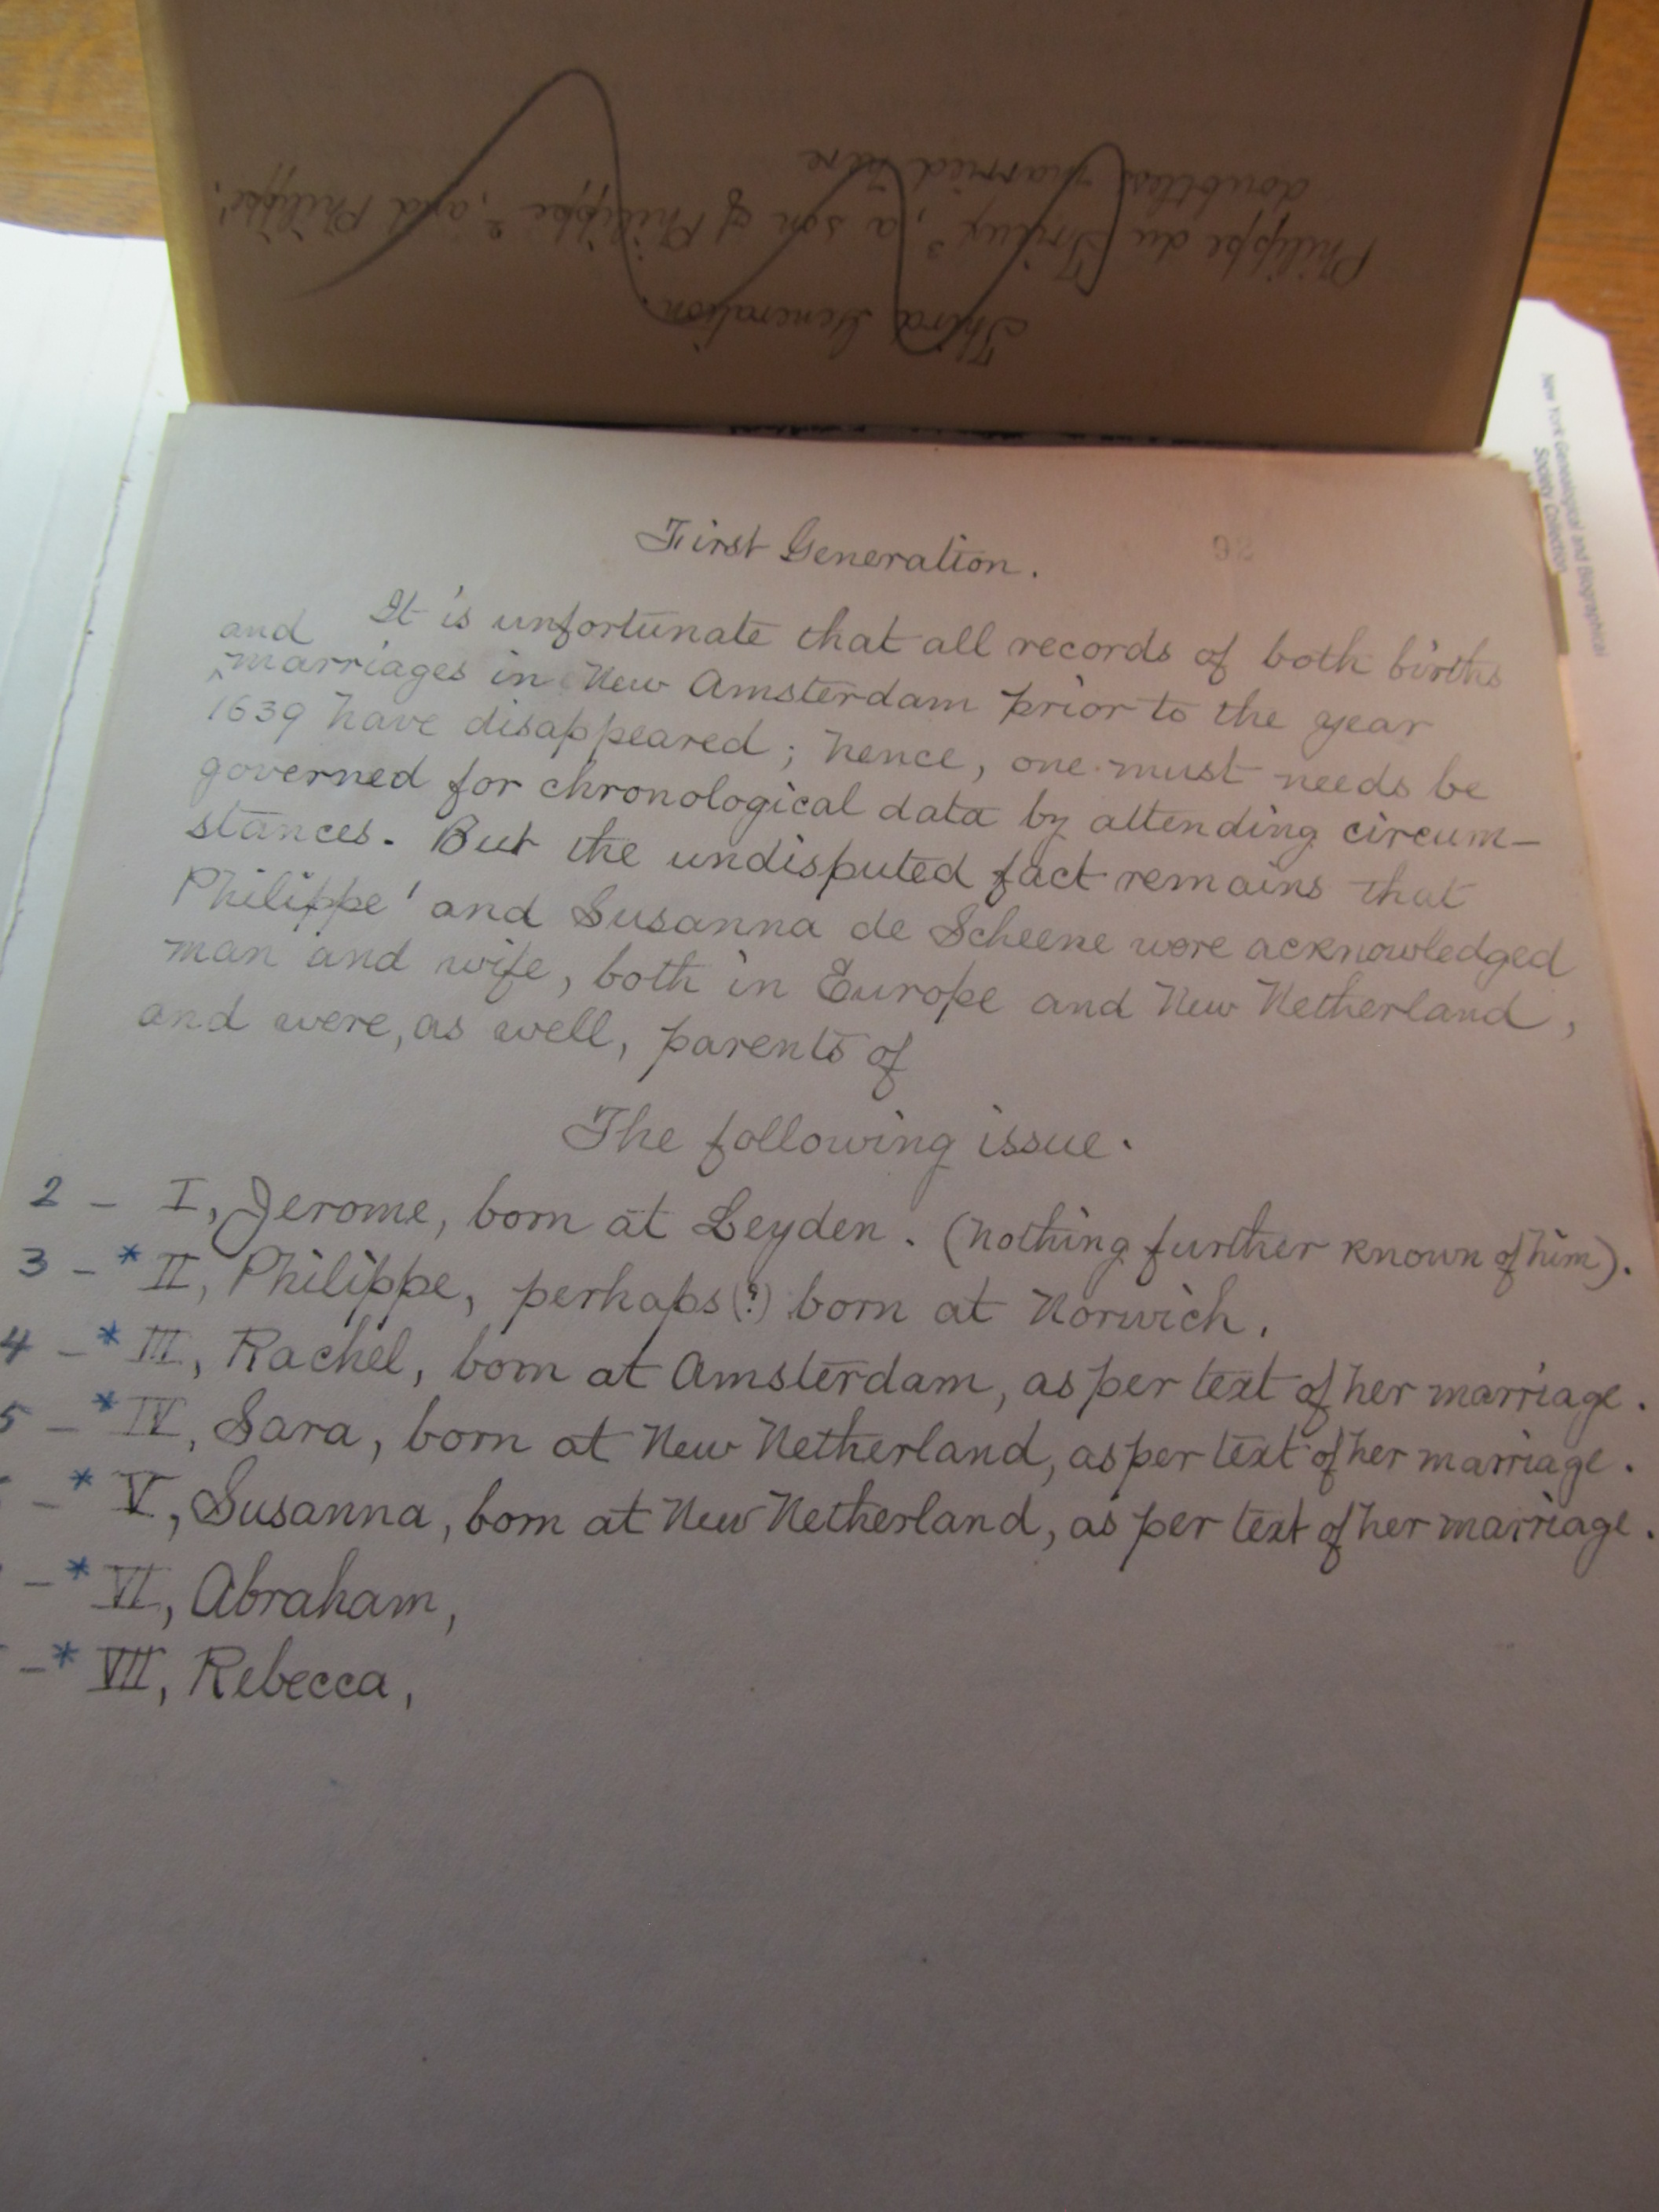 Third Generation.
Philippe du Trieux³, a son of Philippe², and Philippe¹,
doubtless married here
New York Genealogical and Biographical
Society Collection
92
First Generation.
It is unfortunate that all records of both births
and
^marriages in New Amsterdam prior to the year
1639 have disappeared; hence, one must needs be
governed for chronological data by attending circum-
stances. But the undisputed fact remains that
Philippe¹ and Susanna de Scheene were acknowledged
man and wife, both in Europe and New Netherland,
and were, as well, parents of
The following issue.
2 - I, Jerome, born at Leyden. (nothing further known of him).
3 - * II, Philippe, perhaps (?) born at Norwich.
4 - * III, Rachel, born at Amsterdam, as per text of her marriage.
5 - * IV, Sara, born at New Netherland, as per text of her marriage.
- * V, Susanna, born at New Netherland, as per text of her marriage.
- * VI, Abraham,
- * VII, Rebecca,